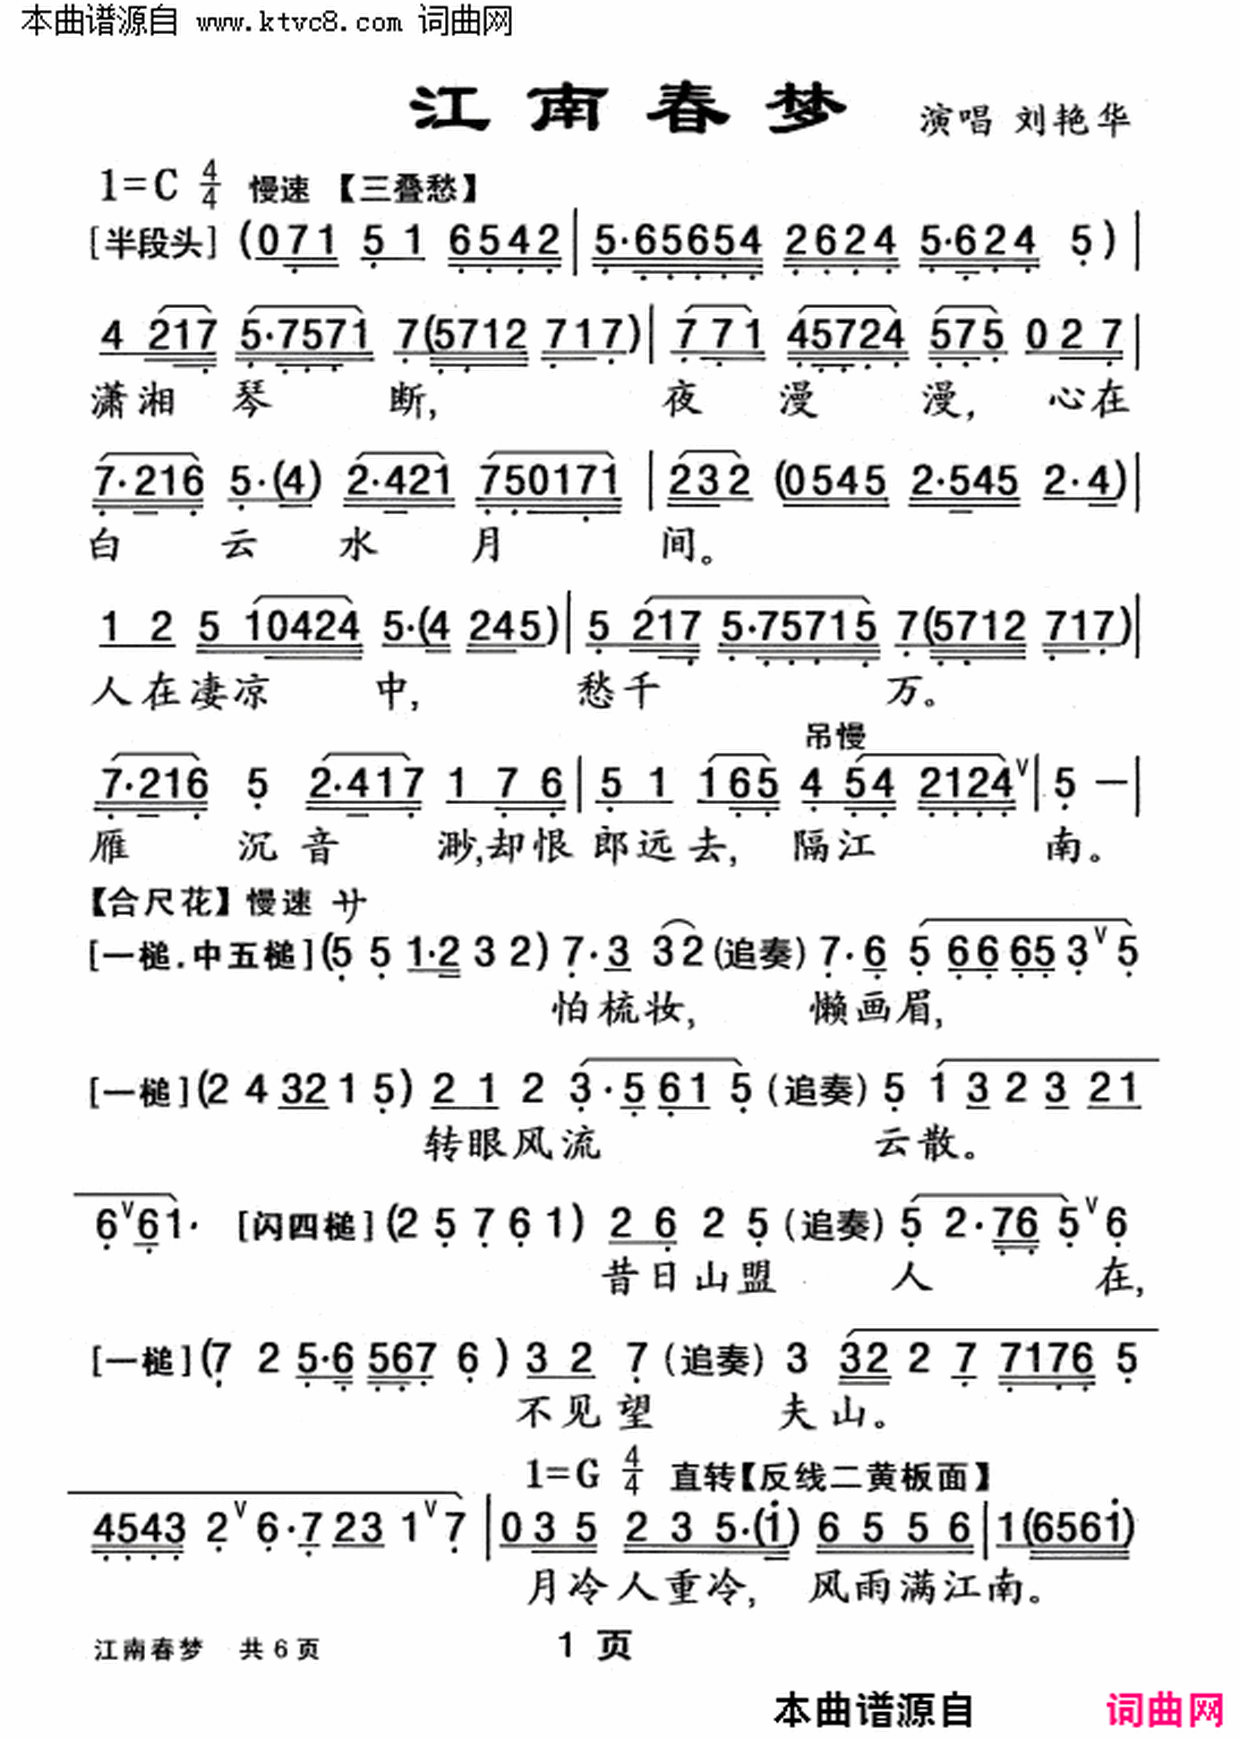 本曲谱源自 www.ktvc8.com 词曲网
江南春梦 演唱 刘艳华
1=C 4/4 慢速 【三叠愁】
[半段头] (071 51 6542 | 5·65654 2624 5·624 5) |
4 217 5·7571 7(5712 717) | 771 45724 575 027
潇湘琴断, 夜漫漫, 心在
7·216 5·(4) 2·421 750171 | 232 (0545 2·545 2·4) |
白云水月间。
12 510424 5·(4 245) | 5 217 5·75715 7(5712 717) |
人在凄凉中, 愁千万。
吊慢
7·216 5 2·417 176 | 51 165 454 2124∨ | 5 — |
雁沉音渺,却恨郎远去, 隔江南。
【合尺花】慢速 サ
[一槌.中五槌] (5 5 1·2 3 2) 7·3 32 (追奏) 7·6 5 66 65 3∨5
怕梳妆, 懒画眉,
[一槌] (2 4 32 1 5) 21 2 3·5 61 5 (追奏) 5 1 3 2 3 21
转眼风流云散。
6∨61· [闪四槌] (2 5 7 6 1) 26 2 5 (追奏) 5 2·76 5∨6
昔日山盟人在,
[一槌] (7 2 5·6 567 6) 32 7 (追奏) 3 32 2 7 7176 5
不见望夫山。
1=G 4/4 直转【反线二黄板面】
4543 2∨6·7 23 1∨7 | 035 235·(i) 6556 | 1(656i)
月冷人重冷, 风雨满江南。
江南春梦 共6页 1 页
本曲谱源自 词曲网